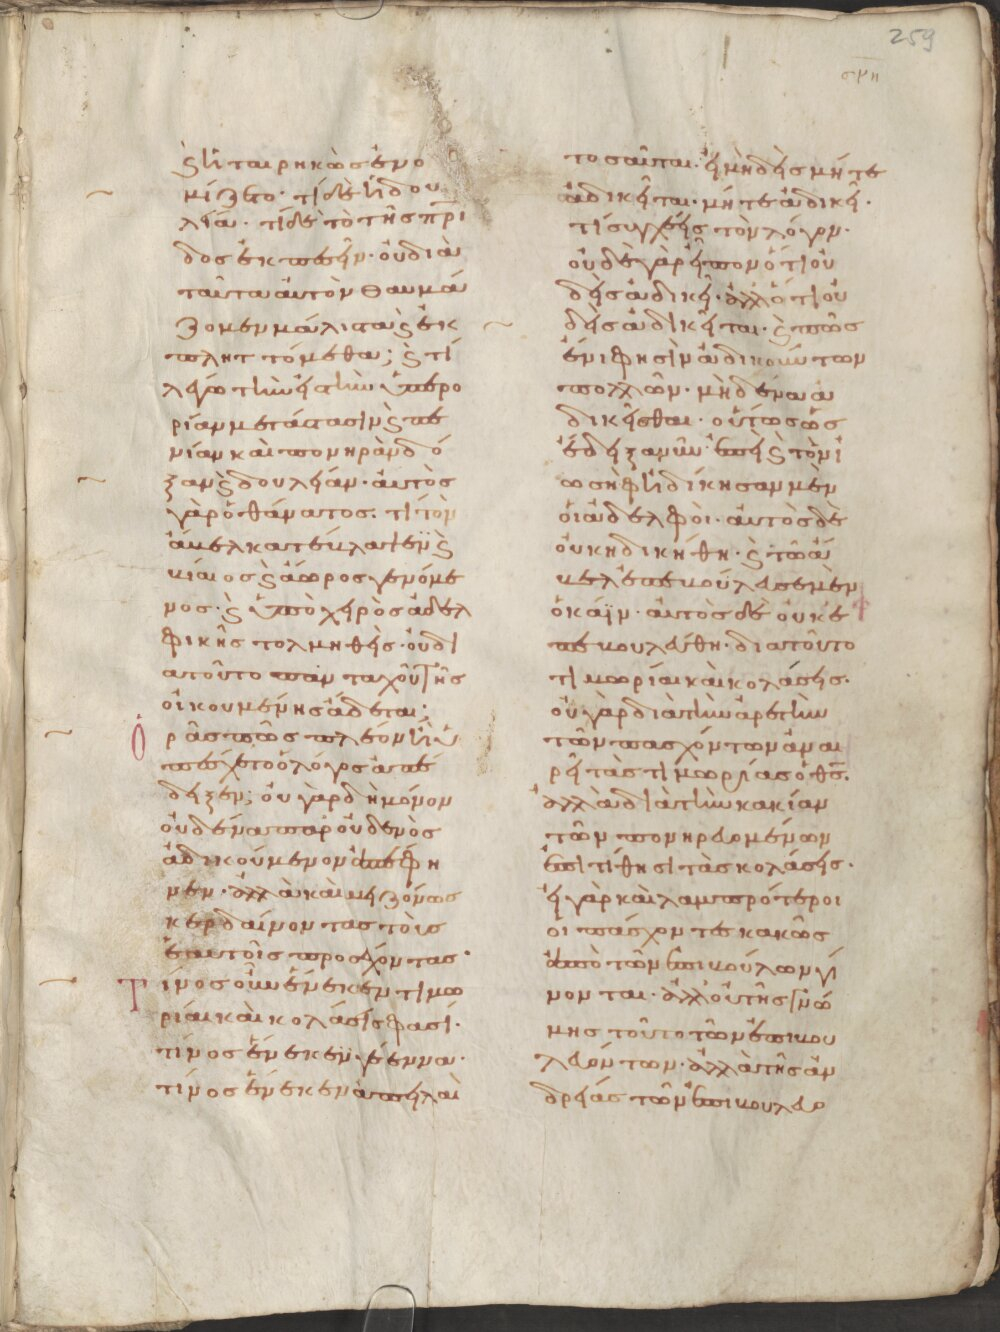 259
σϟη
ϛ ἡταιρηκὼς ἐνο
μίζετο· τί δὲ ἡ δου
λεία· τί δὲ τὸ τῆς πρι
δος ἐκπεσεῖν· οὐ διὰ
ταῦτα αὐτὸν θαυμά
ζομεν μάλιστα ϛ ἐκ
πληττόμεθα; ϛ τί
λέγω τὴν
ρίαν μετάστασιν ϛ πε
νίαν καὶ πονηρὰν δό
ξαν ϛ δουλείαν· αὐτὸς
γὰρ ὁ θάνατος· τί τὸν
ἄβελ κατέβλαψεν ϛ
βίαιος ϛ ἄωρος γενόμε
νος· ϛ ὑπὸ χειρὸς ἀδελ
φικῆς τολμηθείς· οὐ δι
α τοῦτο πανταχοῦ τῆς
οἰκουμένης ἄδεται;
Ὁ
ρᾶς πῶς πλέον ἢ ὑ
πέσχετο ὁ λόγος ἀπέ
δειξεν; οὐ γὰρ δὴ μόνον
οὐδένα παρ οὐδενὸς
ἀδικούμενον ἀπέφη
νεν· ἀλλὰ καὶ μειζόνως
κερδαίνοντας τοὺς
ἑαυτοῖς προσέχοντας·
Τίνος οὖν ἕνεκεν τιμω
ρίαι καὶ κολάσεις φασί·
τίνος ἕνεκεν γέεννα·
τίνος ἕνεκεν ἀπειλαὶ
τοσαῦται· εἰ μηδεὶς μήτε
ἀδικεῖται· μήτε ἀδικεῖ·
τί συγχέεις τὸν λόγον·
οὐδὲ γὰρ εἶπον ὅτι οὐ
δεὶς ἀδικεῖ· ἀλλ ὅτι οὐ
δεὶς ἀδικεῖται· ϛ πῶς
ἔνι φησὶν ἀδικούντων
πολλῶν· μηδένα ἀ
δικεῖσθαι· οὕτως ὡς
ἔδειξα νῦν· ἐπεὶ ϛ τὸν ἰ
ωσὴφ ἠδίκησαν μὲν
οἱ ἀδελφοὶ· αὐτὸς δὲ
οὐκ ἠδικήθη· ϛ τῶ ἄ
βελ ἐπεβούλευσε μὲν
ὁ κάϊν· αὐτὸς δὲ οὐκ ἐ
πεβουλεύθη· διατοῦτο
τιμωρίαι καὶ κολάσεις·
οὐ γὰρ διὰ τὴν ἀρετὴν
τῶν πασχόντων ἀναι
ρεῖ τὰς τιμωρίας ὁ θς·
ἀλλὰ διὰ τὴν κακίαν
τῶν πονηρευομένων
ἐπιτίθησι τὰς κολάσεις·
εἰ γὰρ καὶ λαμπρότεροι
οἱ πάσχοντες κακῶς
ἀπὸ τῶν ἐπιβούλων γί
νονται· ἀλλ οὐ τῆς γνώ
μης τοῦτο τῶν ἐπιβου
λευόντων· ἀλλὰ τῆς ἀν
δρείας τῶν ἐπιβουλευο